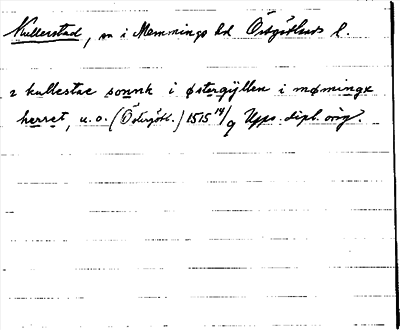 Kullerstad, sn i Memmings hd Östgötlands l.
i kullestae sonnk i østergyllen i mømingx
herret, u.o. (Östergötl.) 1515 14/9 Upps. dipl. orig.